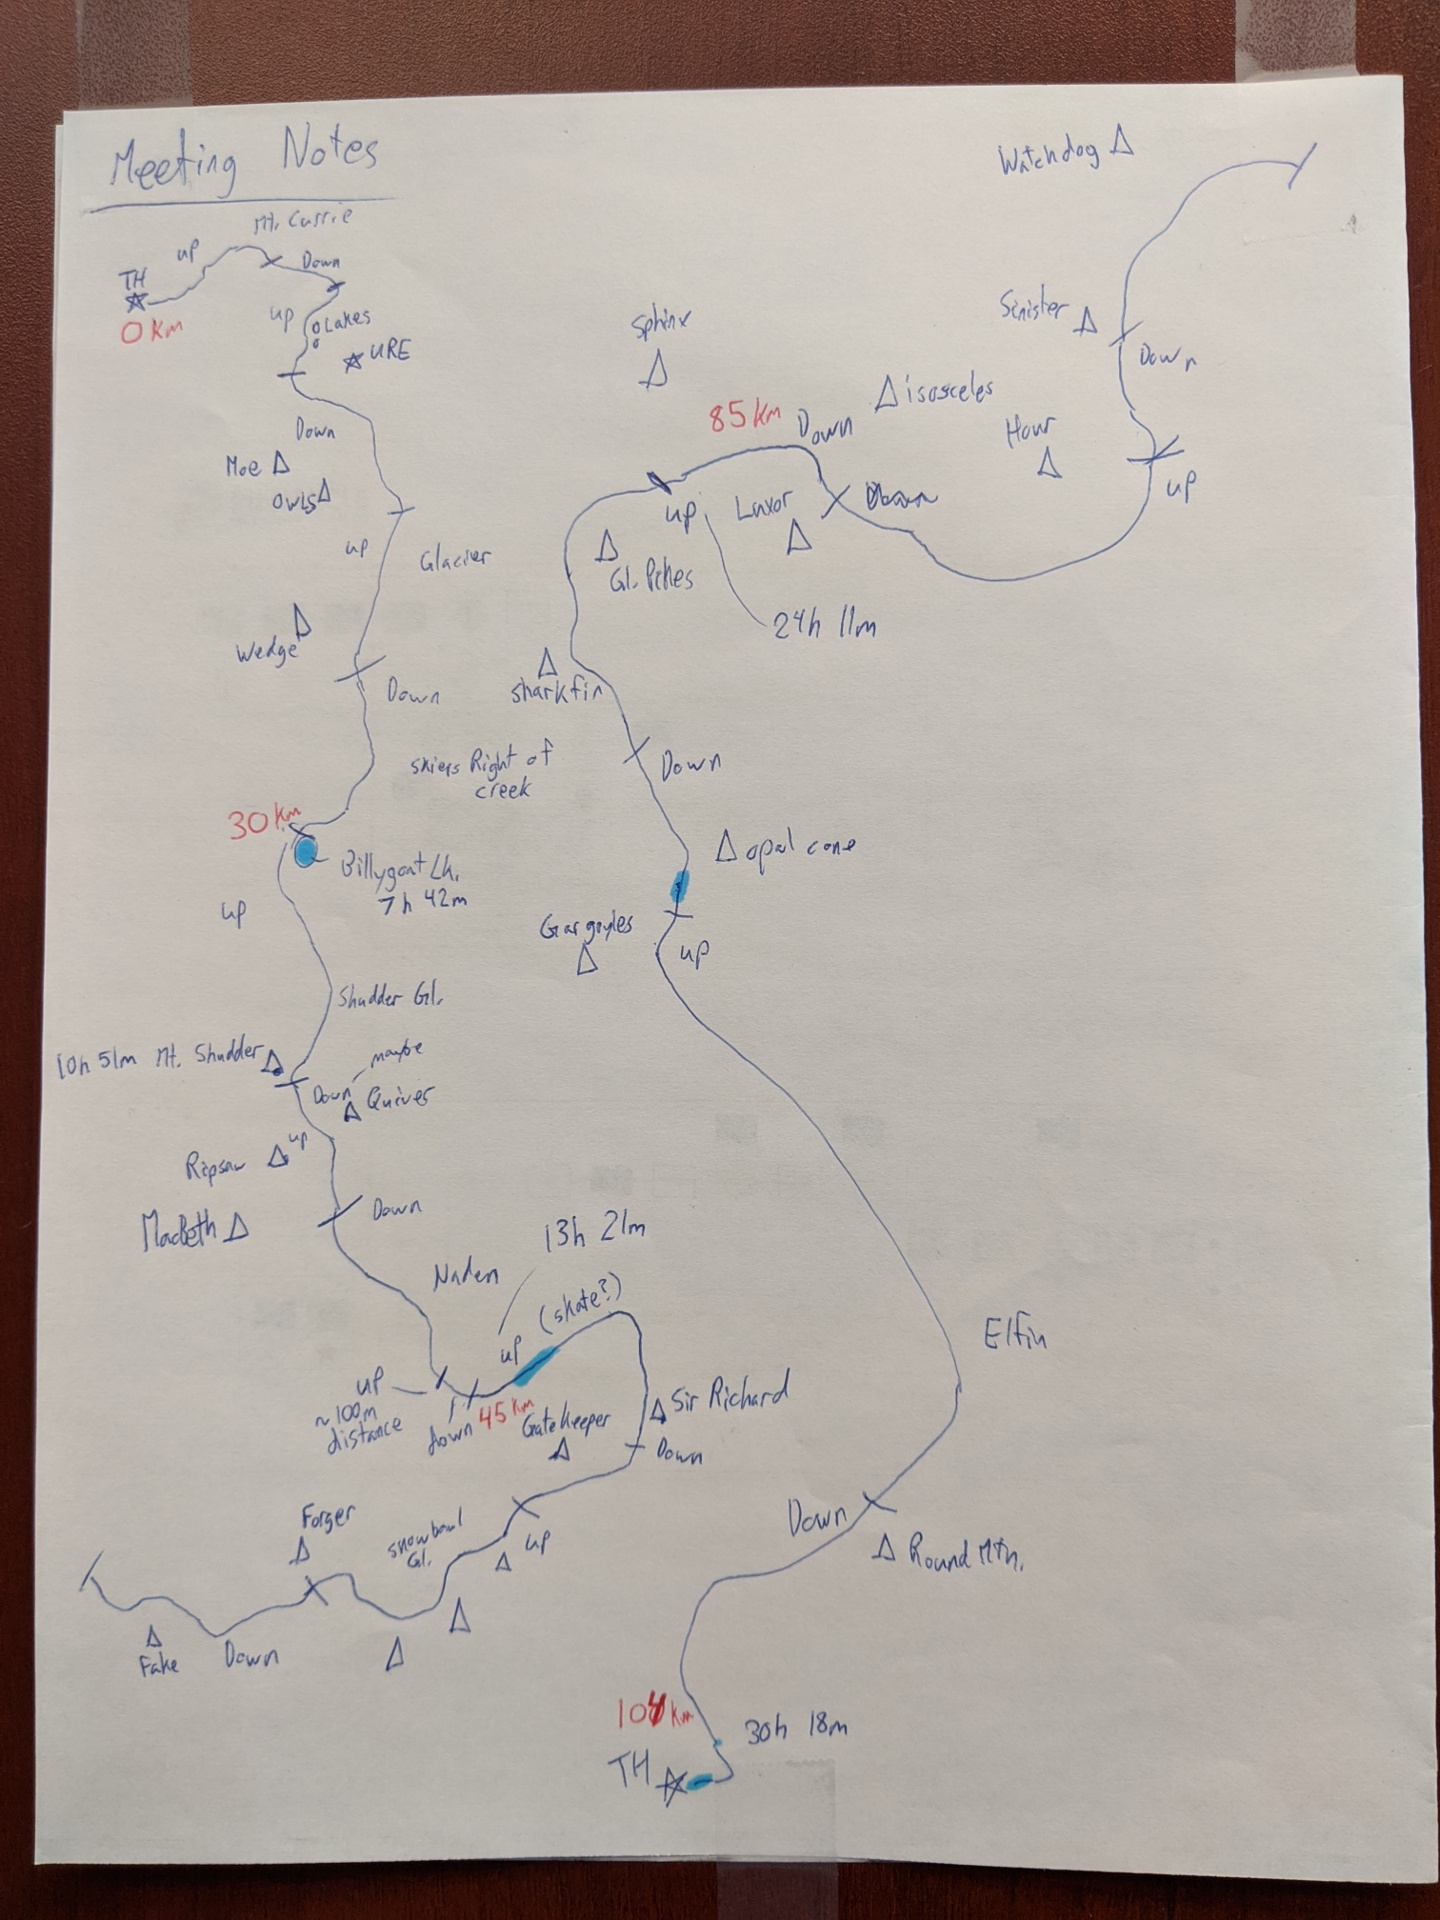 Meeting Notes
Mt. Currie
up
Down
TH
0 Km
up
Lakes
URE
Down
Moe
owls
up
Glacier
Wedge
Down
skiers Right of
creek
30 Km
Billygoat Lk.
7h 42m
up
Shudder Gl.
10h 51m Mt. Shudder
maybe
Down
Quiver
Ripsaw
up
MacBeth
Down
Naden
13h 21m
(skate?)
up
up
~100m
distance
down
45 Km
GateKeeper
Sir Richard
Down
up
snowbowl
Gl.
Forger
Down
Fake
Watchdog
Sinister
Down
Hour
up
isosceles
Sphinx
85 Km
Down
Luxor
up
24h 11m
Gl. Pikes
sharkfin
Down
opal cone
Gargoyles
up
Elfin
Down
Round Mtn.
104 Km
30h 18m
TH